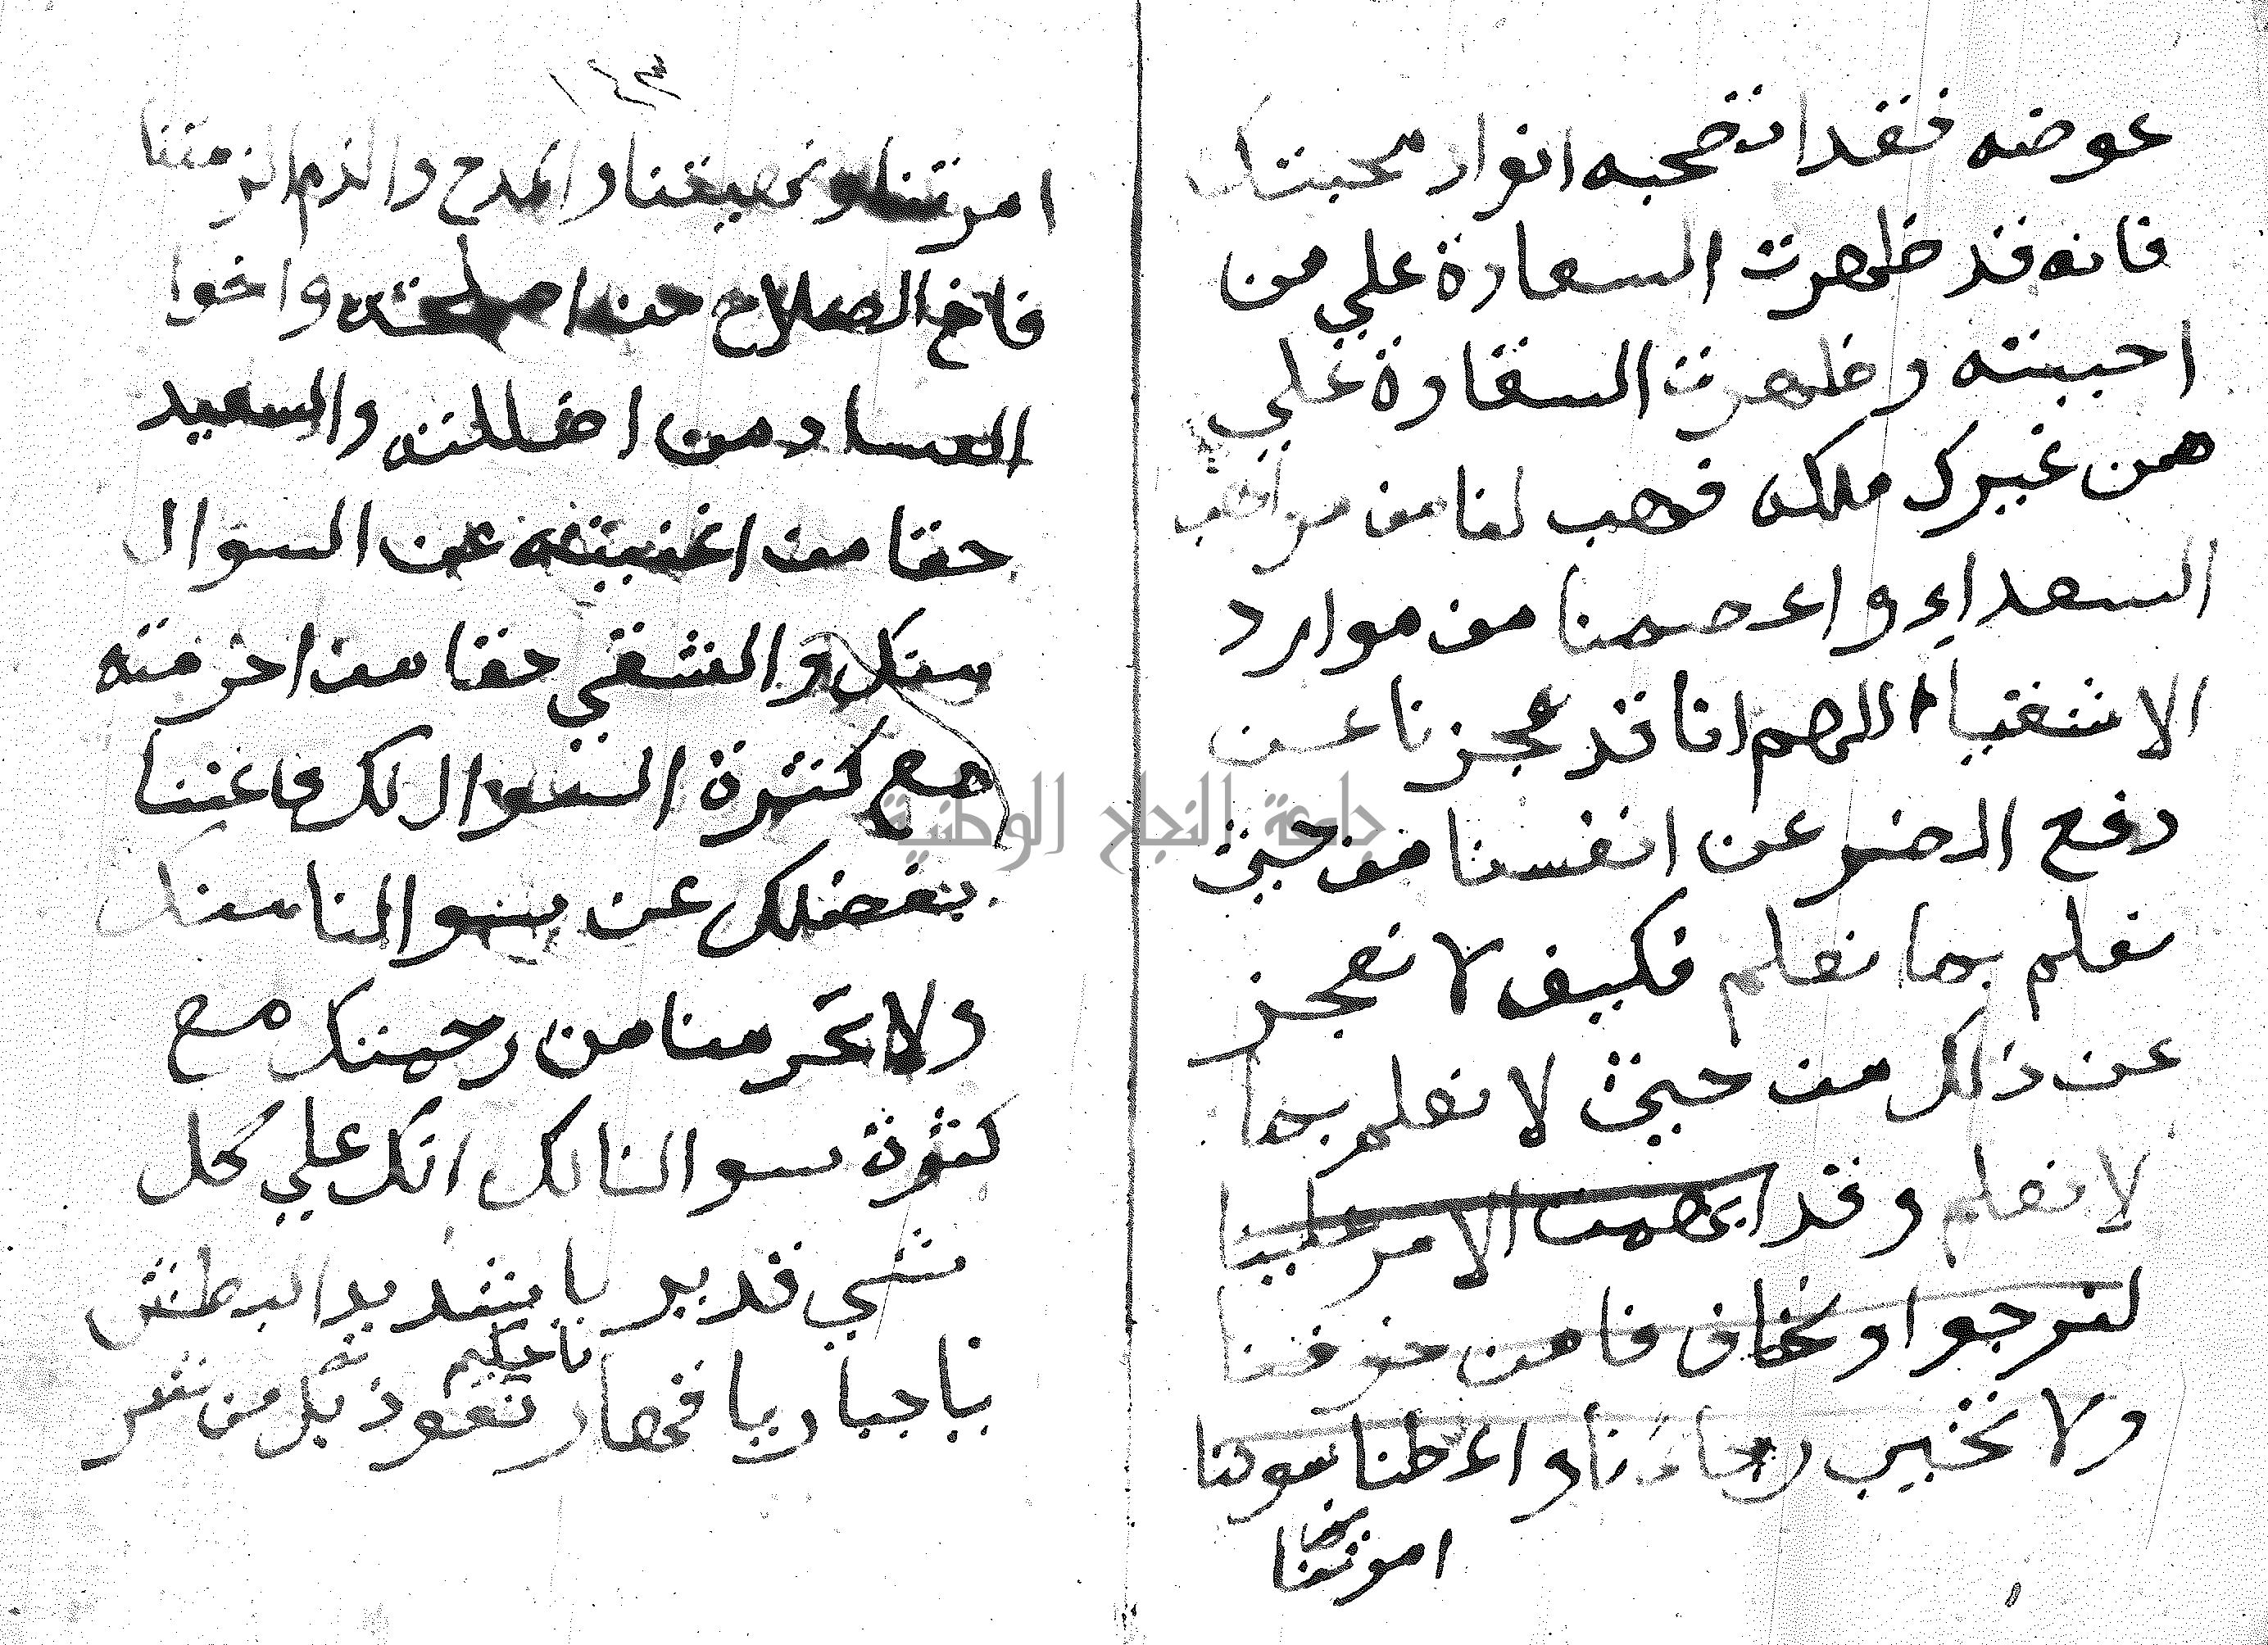 عوضه فقد انصحبه انوار محبتك
فانه قد ظهرت السعادة علي من
احببته وظهرت الشقاوة علي
من غيرك ملكه فهب لنا من مواهب
السعداء واعصمنا من موارد
الاشقياء اللهم انا قد عجزنا عن
دفع الضر عن انفسنا من حيث
نعلم بما نعلم فكيف لا نعجز
عن ذلك من حيث لا نعلم بما
لا نعلم وقد ابهمت الامر علينا
لنرجوا ونخاف فامن خوفنا
ولا تخيب رجاءنا واعطنا سولنا
امرتنا
١٤٣
امرتنا ونهيتنا والمدح والذم الزمتنا
فاخ الصلاح من اصلحته واخوا
الفساد من اضللته والسعيد
حقا من اغنيته عن السوال
منك والشقي حقا من احرمته
مع كثرة السوال لك فاغننا
بفضلك عن سوالنا منك
ولا تحرمنا من رحمتك مع
كثرة سوالنا لك انك علي كل
شي قدير يا شديد البطش
يا جبار يا قهار يا حكيم نعوذ بك من شر
جامعة النجاح الوطنية